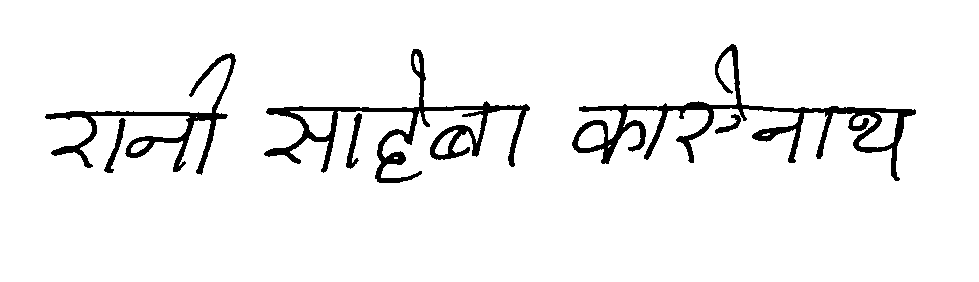 रानी साहेबा कारुेनाथ